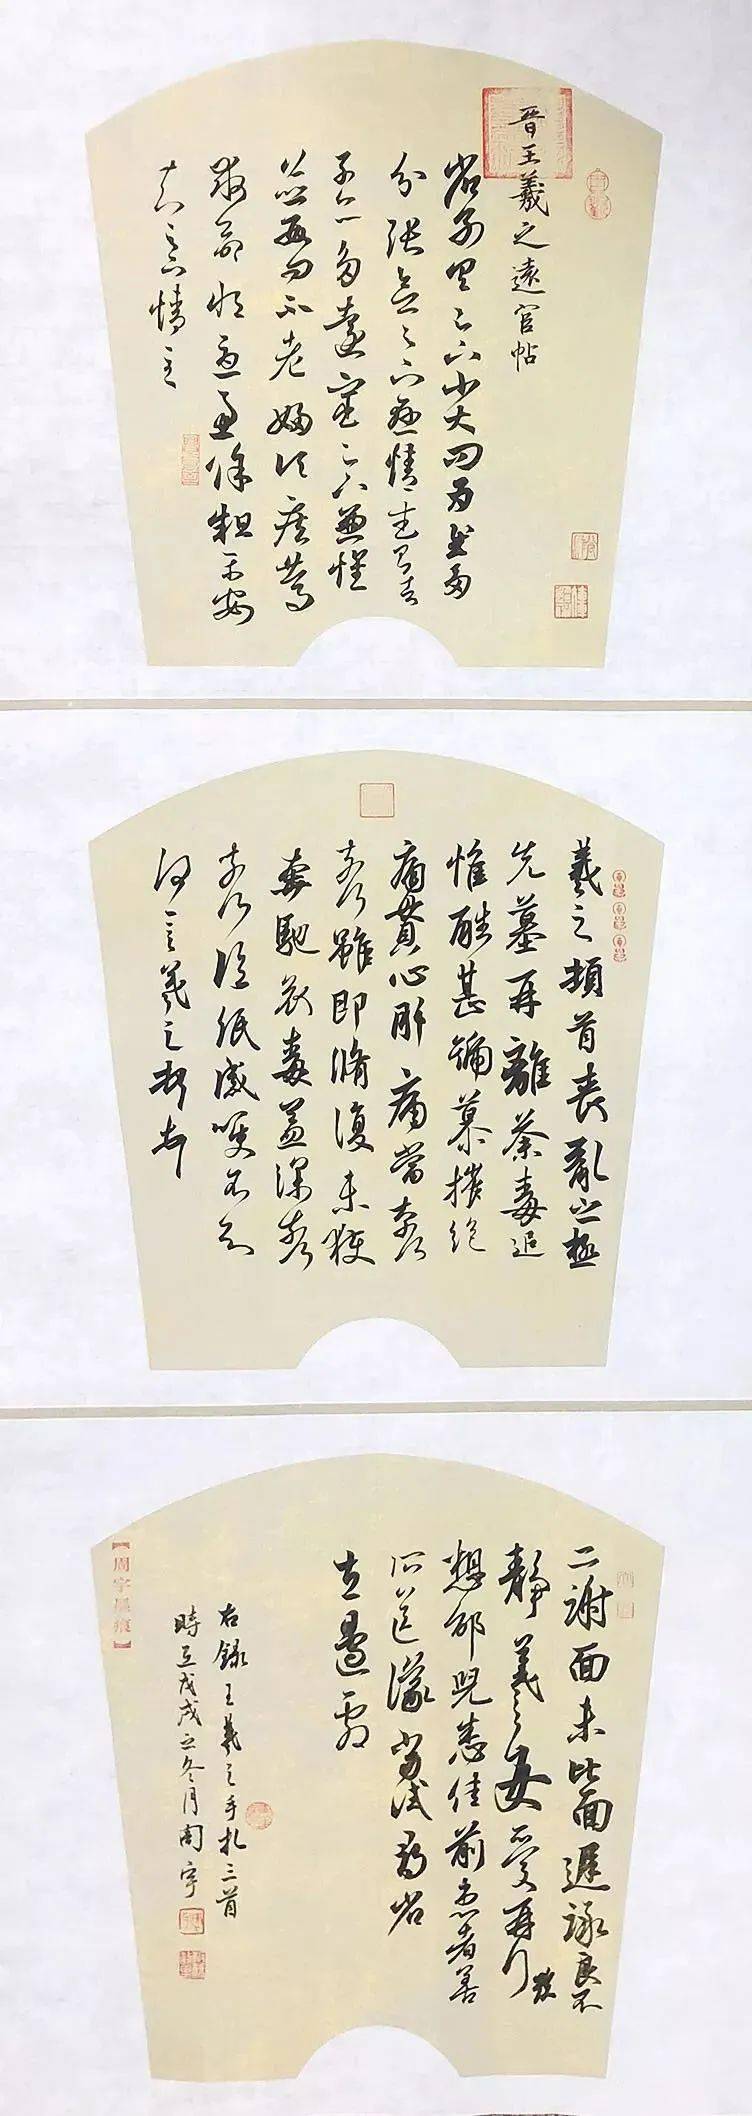 晉王羲之遠官帖
省別具足下小大問為慰多
分張念足下懸情武昌諸
子亦多遠宦足下兼懷
並數問不老婦頃疾篤
救命恒憂慮餘粗平安
知足下情至
羲之頓首喪亂之極
先墓再離荼毒追
惟酷甚號慕摧絕
痛貫心肝痛當奈何
奈何雖即脩復未獲
奔馳哀毒益深奈何
奈何臨紙感哽不知
何言羲之頓首頓首
二謝面未比面遲詠良不
靜羲之女愛再拜
想邵兒悉佳前患者善
所送議當試尋省
左邊劇
右錄王羲之手札三首
時在戊戌之冬月周宇
【周宇墨痕】